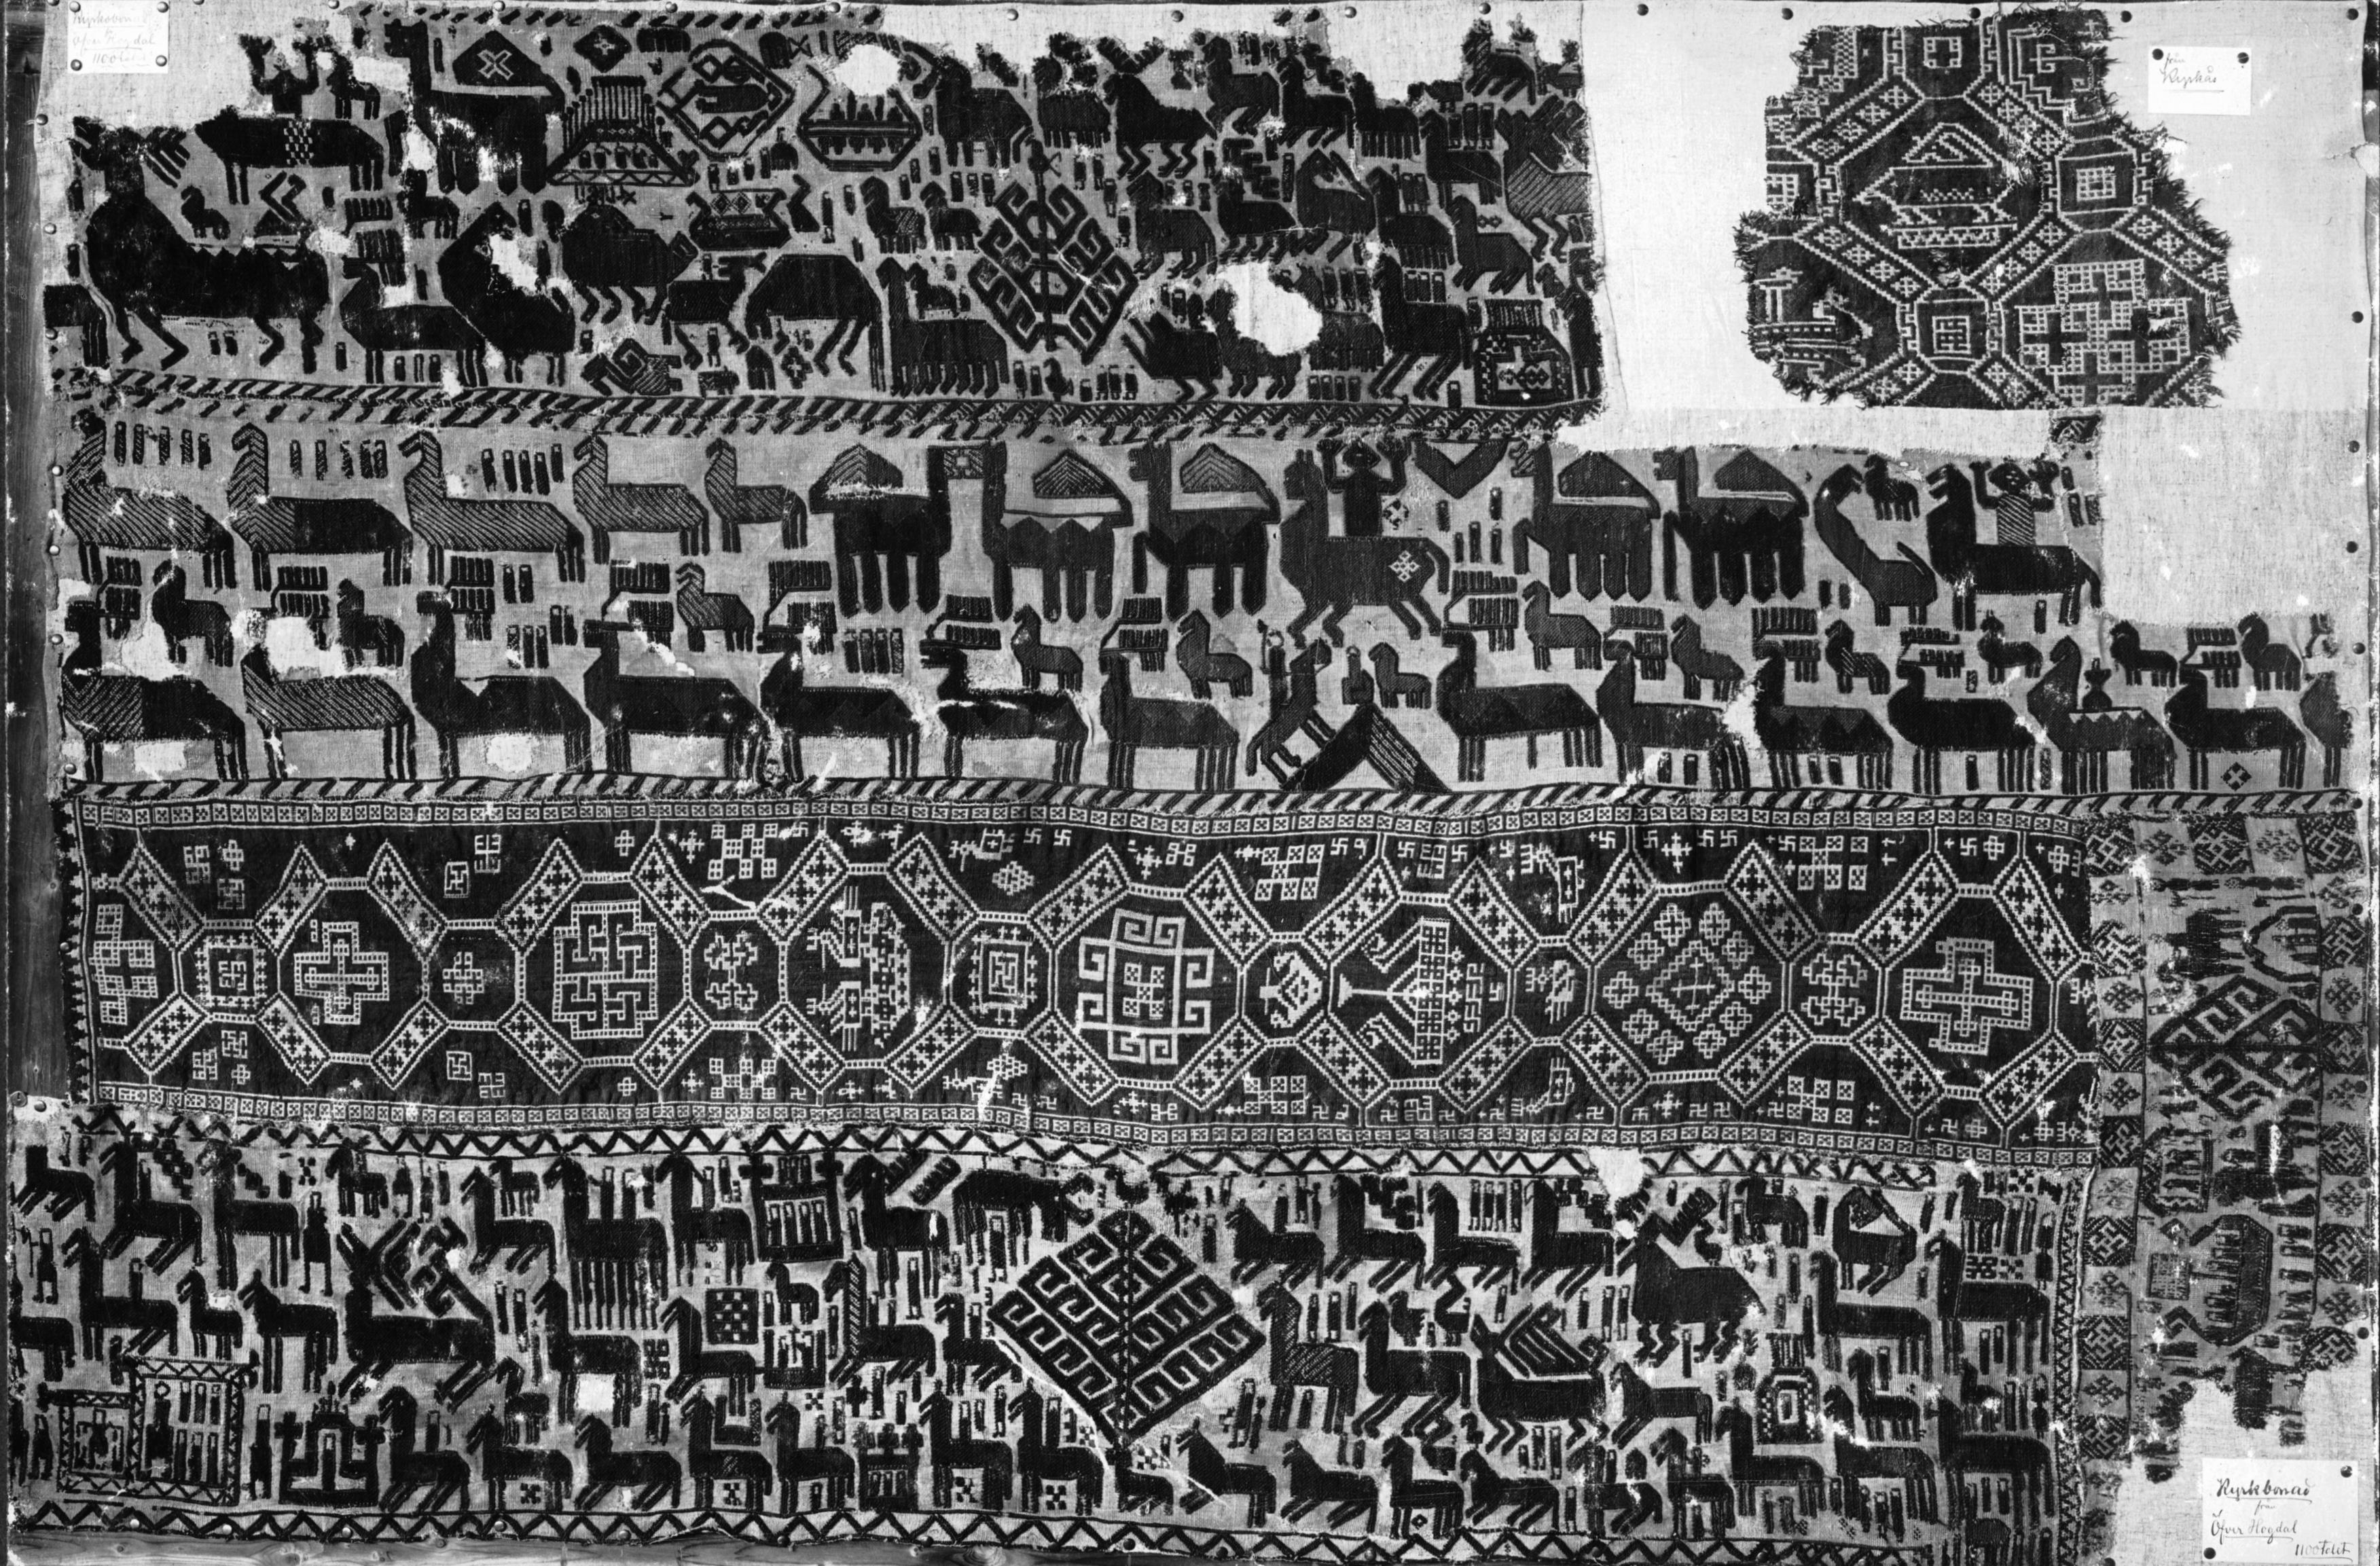 Kyrkobonad
från
Öfver Hogdal
1100talet
från
Kyrkås
Kyrkbonad
från
Öfver Hogdal
1100talet